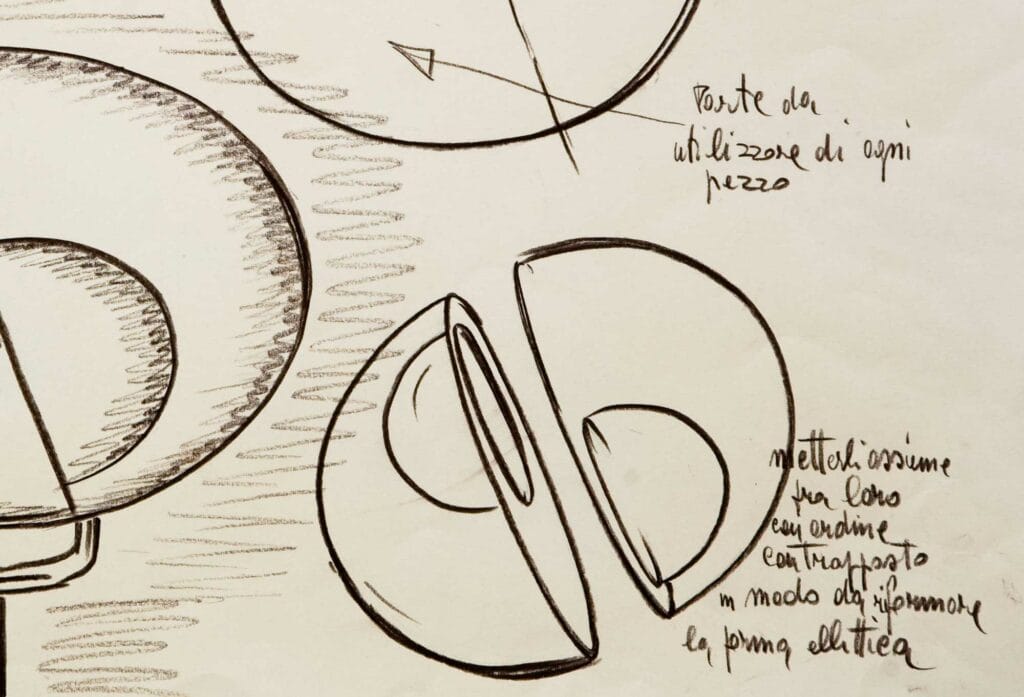 Parte da
utilizzare di ogni
pezzo
metterli assieme
fra loro
con ordine
contrapposto
in modo da riformare
la forma ellittica